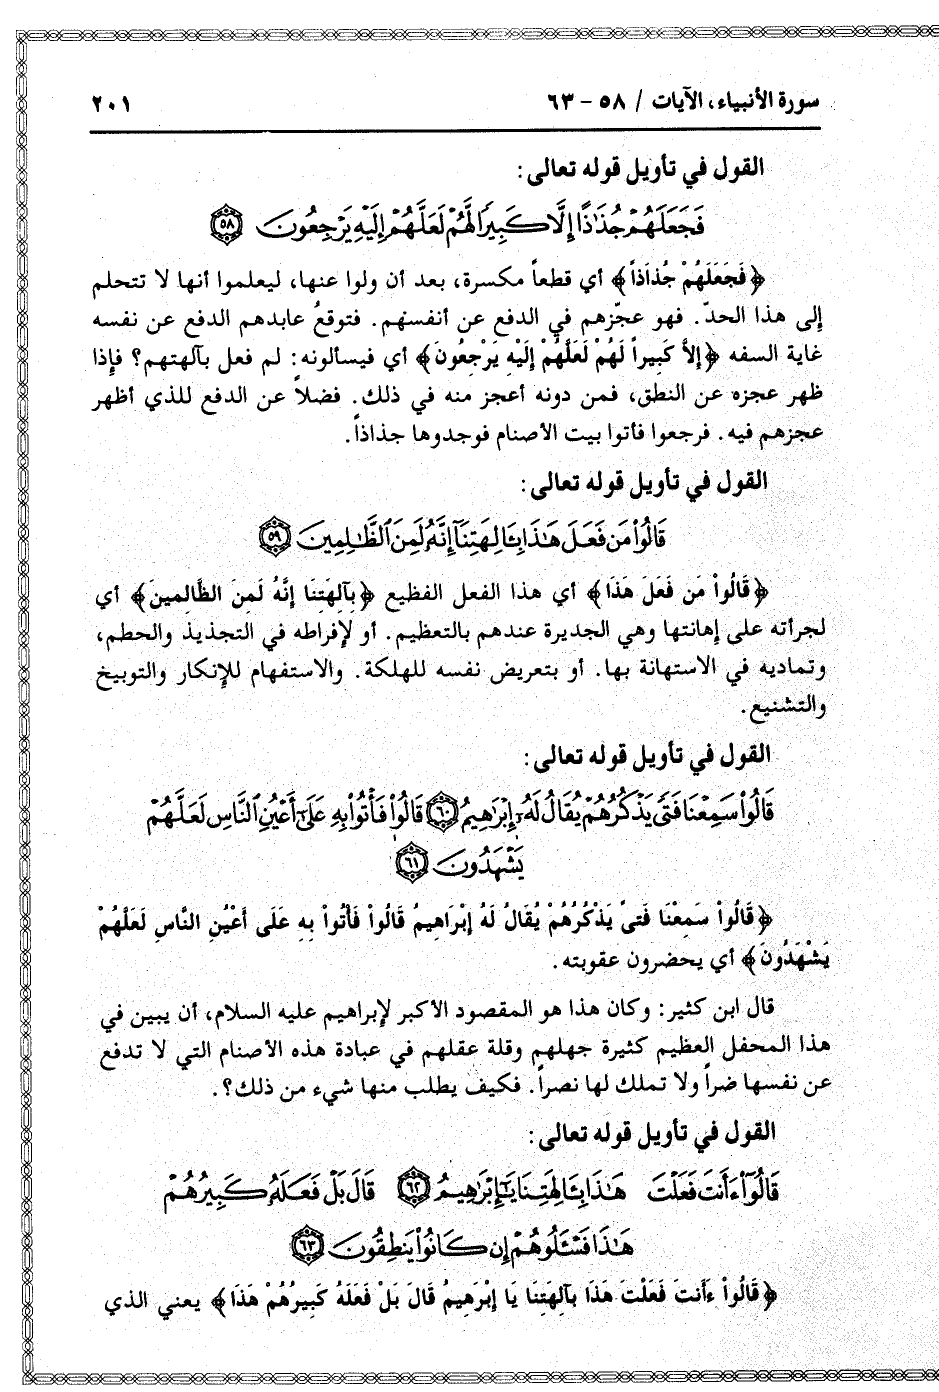 سورة الأنبياء، الآيات / ٥٨ - ٦٣ ٢٠١
القول في تأويل قوله تعالى:
فَجَعَلَهُمْ جُذَٰذًا إِلَّا كَبِيرًا لَّهُمْ لَعَلَّهُمْ إِلَيْهِ يَرْجِعُونَ ٥٨
﴿فَجَعَلَهُمْ جُذَاذاً﴾ أي قطعاً مكسرة، بعد أن ولوا عنها، ليعلموا أنها لا تتحلم
إلى هذا الحدّ. فهو عجّزهم في الدفع عن أنفسهم. فتوقعُ عابدهم الدفع عن نفسه
غاية السفه ﴿إِلاَّ كَبِيراً لَهُمْ لَعَلَّهُمْ إِلَيْهِ يَرْجِعُونَ﴾ أي فيسألونه: لم فعل بآلهتهم؟ فإذا
ظهر عجزه عن النطق، فمن دونه أعجز منه في ذلك. فضلاً عن الدفع للذي أظهر
عجزهم فيه. فرجعوا فأتوا بيت الأصنام فوجدوها جذاذاً.
القول في تأويل قوله تعالى:
قَالُوا۟ مَن فَعَلَ هَٰذَا بِـَٔالِهَتِنَآ إِنَّهُۥ لَمِنَ ٱلظَّٰلِمِينَ ٥٩
﴿قَالُواْ مَن فَعَلَ هَذَا﴾ أي هذا الفعل الفظيع ﴿بِآلِهَتِنَا إِنَّهُ لَمِنَ الظَّالِمِينَ﴾ أي
لجرأته على إهانتها وهي الجديرة عندهم بالتعظيم. أو لإفراطه في التجذيذ والحطم،
وتماديه في الاستهانة بها. أو بتعريض نفسه للهلكة. والاستفهام للإنكار والتوبيخ
والتشنيع.
القول في تأويل قوله تعالى:
قَالُوا۟ سَمِعْنَا فَتًى يَذْكُرُهُمْ يُقَالُ لَهُۥٓ إِبْرَٰهِيمُ ٦٠ قَالُوا۟ فَأْتُوا۟ بِهِۦ عَلَىٰٓ أَعْيُنِ ٱلنَّاسِ لَعَلَّهُمْ
يَشْهَدُونَ ٦١
﴿قَالُواْ سَمِعْنَا فَتىً يَذْكُرُهُمْ يُقَالُ لَهُ إِبْرَاهِيمُ قَالُواْ فَأْتُواْ بِهِ عَلَى أَعْيُنِ النَّاسِ لَعَلَّهُمْ
يَشْهَدُونَ﴾ أي يحضرون عقوبته.
قال ابن كثير: وكان هذا هو المقصود الأكبر لإبراهيم عليه السلام، أن يبين في
هذا المحفل العظيم كثيرة جهلهم وقلة عقلهم في عبادة هذه الأصنام التي لا تدفع
عن نفسها ضراً ولا تملك لها نصراً. فكيف يطلب منها شيء من ذلك؟.
القول في تأويل قوله تعالى:
قَالُوٓا۟ ءَأَنتَ فَعَلْتَ هَٰذَا بِـَٔالِهَتِنَا يَٰٓإِبْرَٰهِيمُ ٦٢ قَالَ بَلْ فَعَلَهُۥ كَبِيرُهُمْ
هَٰذَا فَسْـَٔلُوهُمْ إِن كَانُوا۟ يَنطِقُونَ ٦٣
﴿قَالُواْ ءَأَنتَ فَعَلْتَ هَذَا بِآلِهَتِنَا يَا إِبْرَهِيمُ قَالَ بَلْ فَعَلَهُ كَبِيرُهُمْ هَذَا﴾ يعني الذي